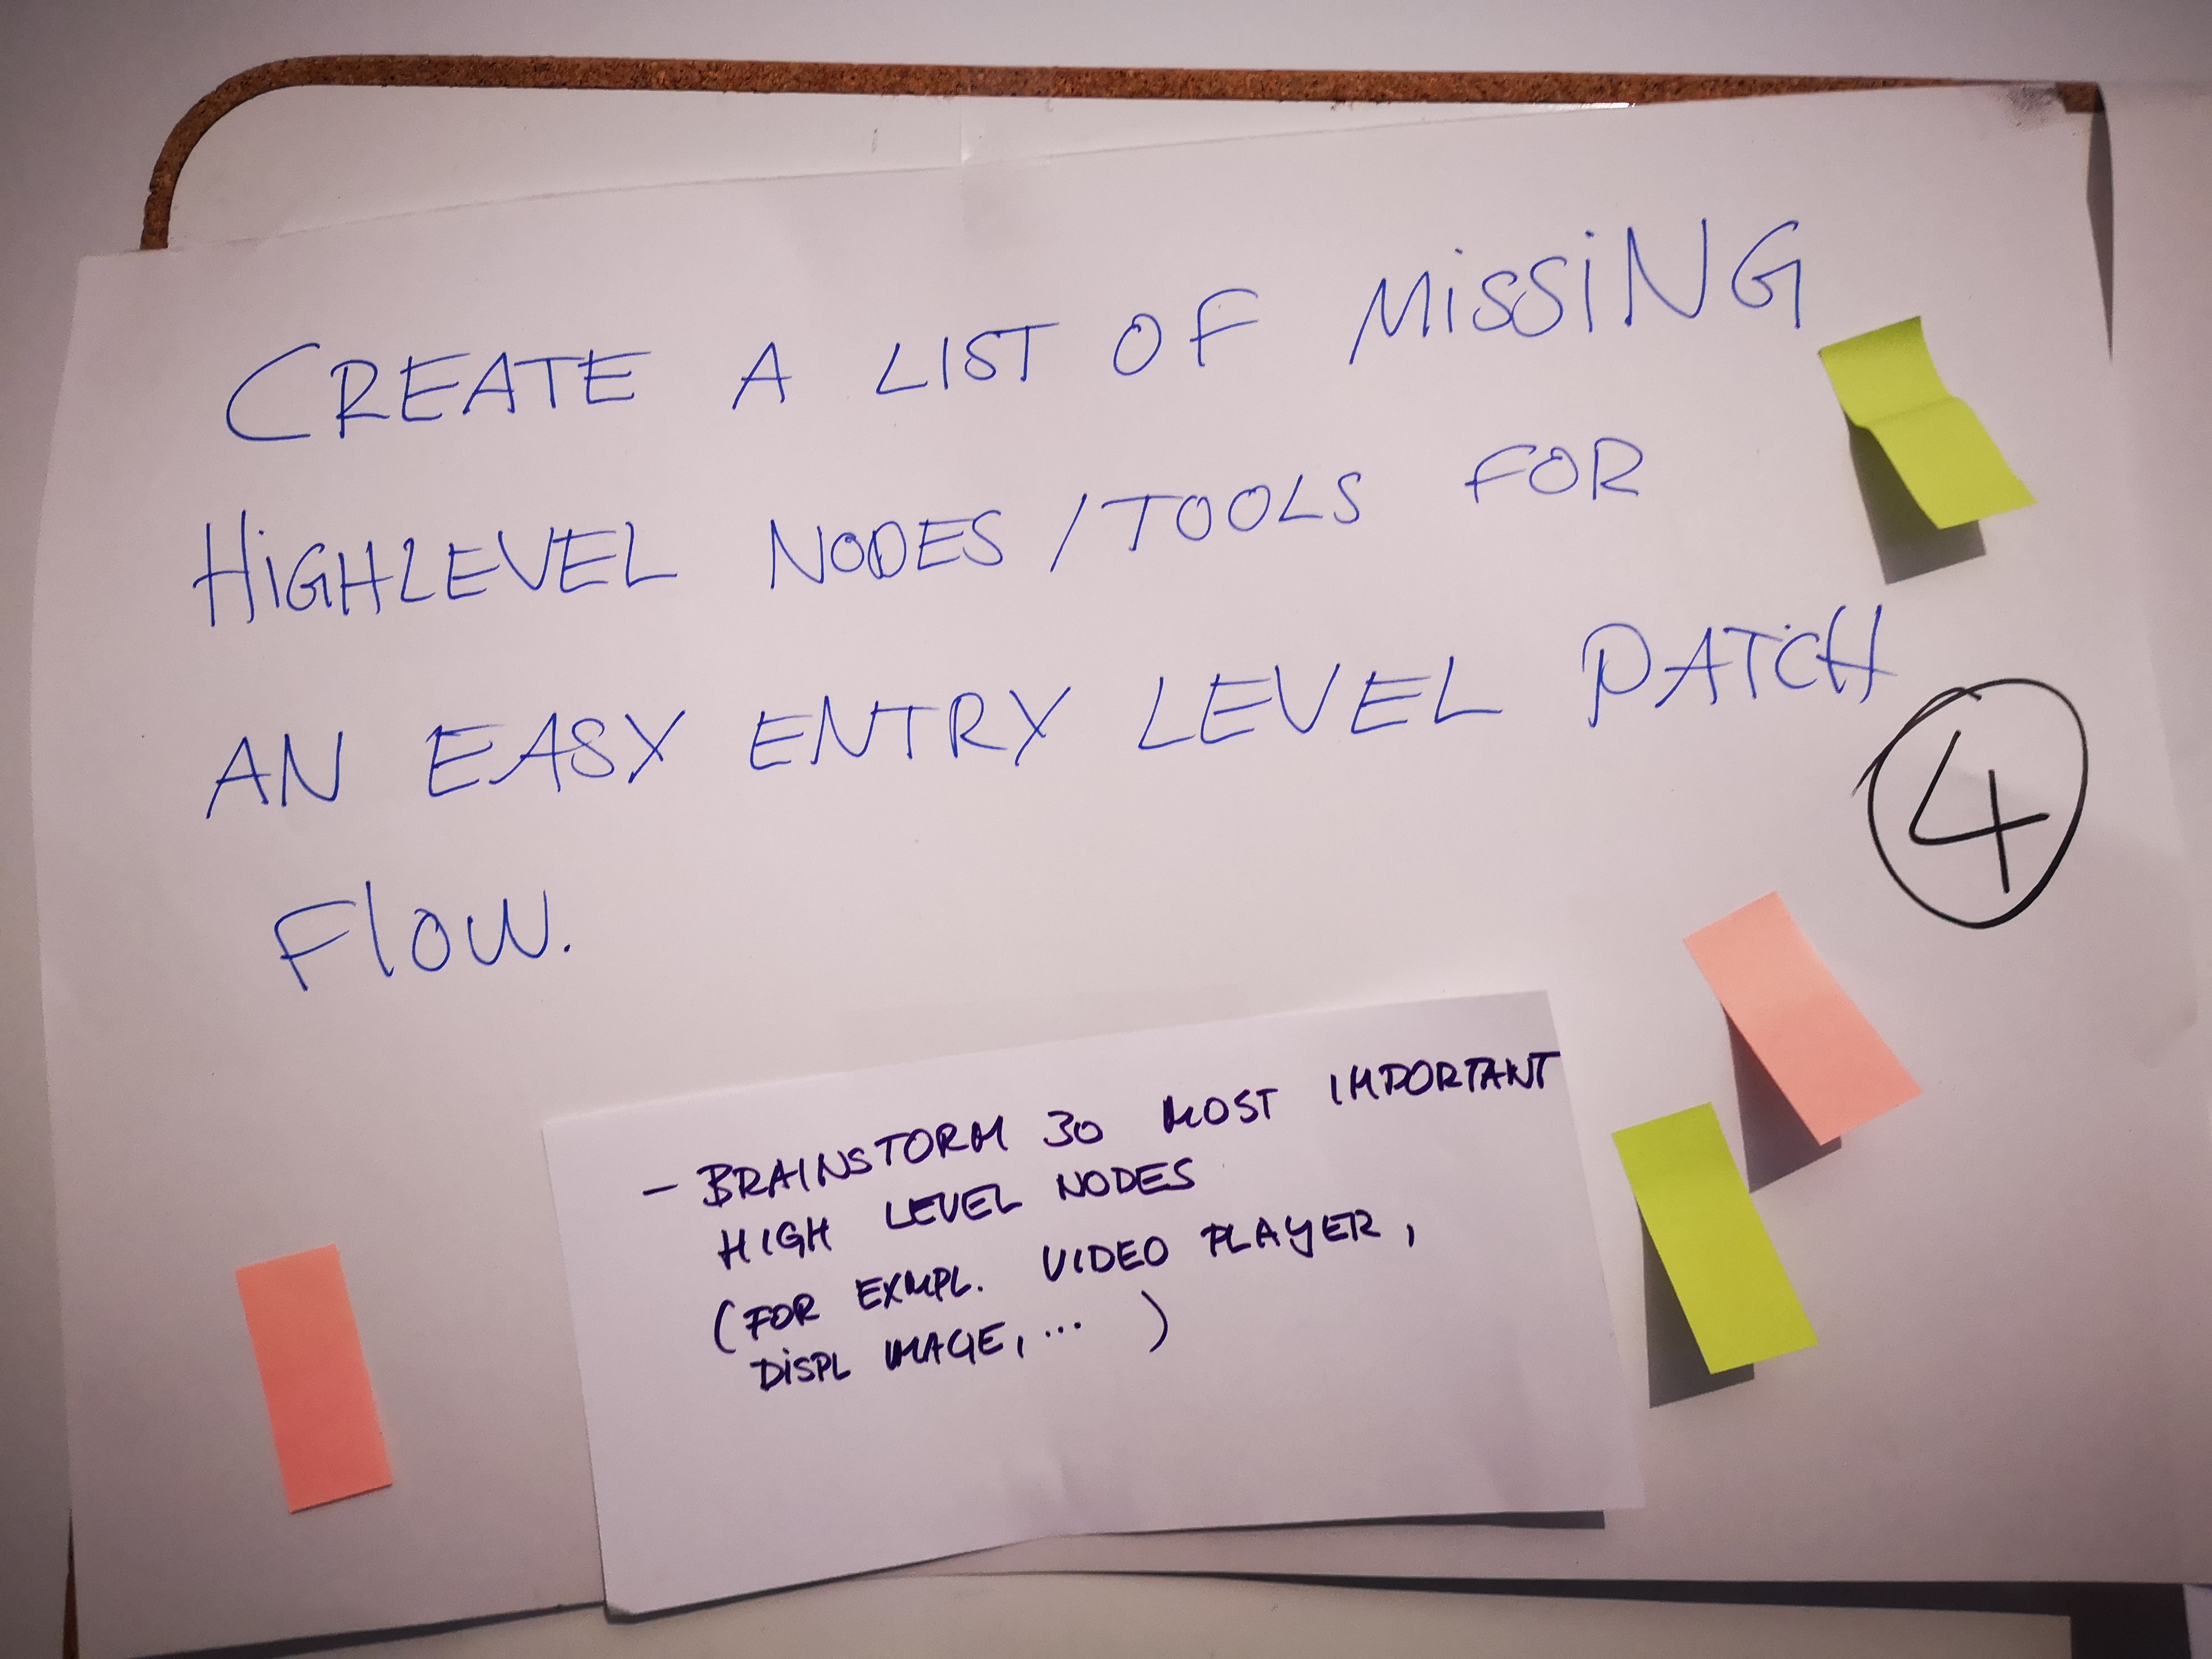 CREATE A LIST OF MiSSiNG
HiGHLEVEL NODES / TOOLS FOR
AN EASY ENTRY LEVEL PATCH
FlOW.
4
- BRAINSTORM 30 MOST IMPORTANT
HIGH LEVEL NODES
(FOR EXMPL. VIDEO PLAYER,
DiSPL IMAGE, ... )